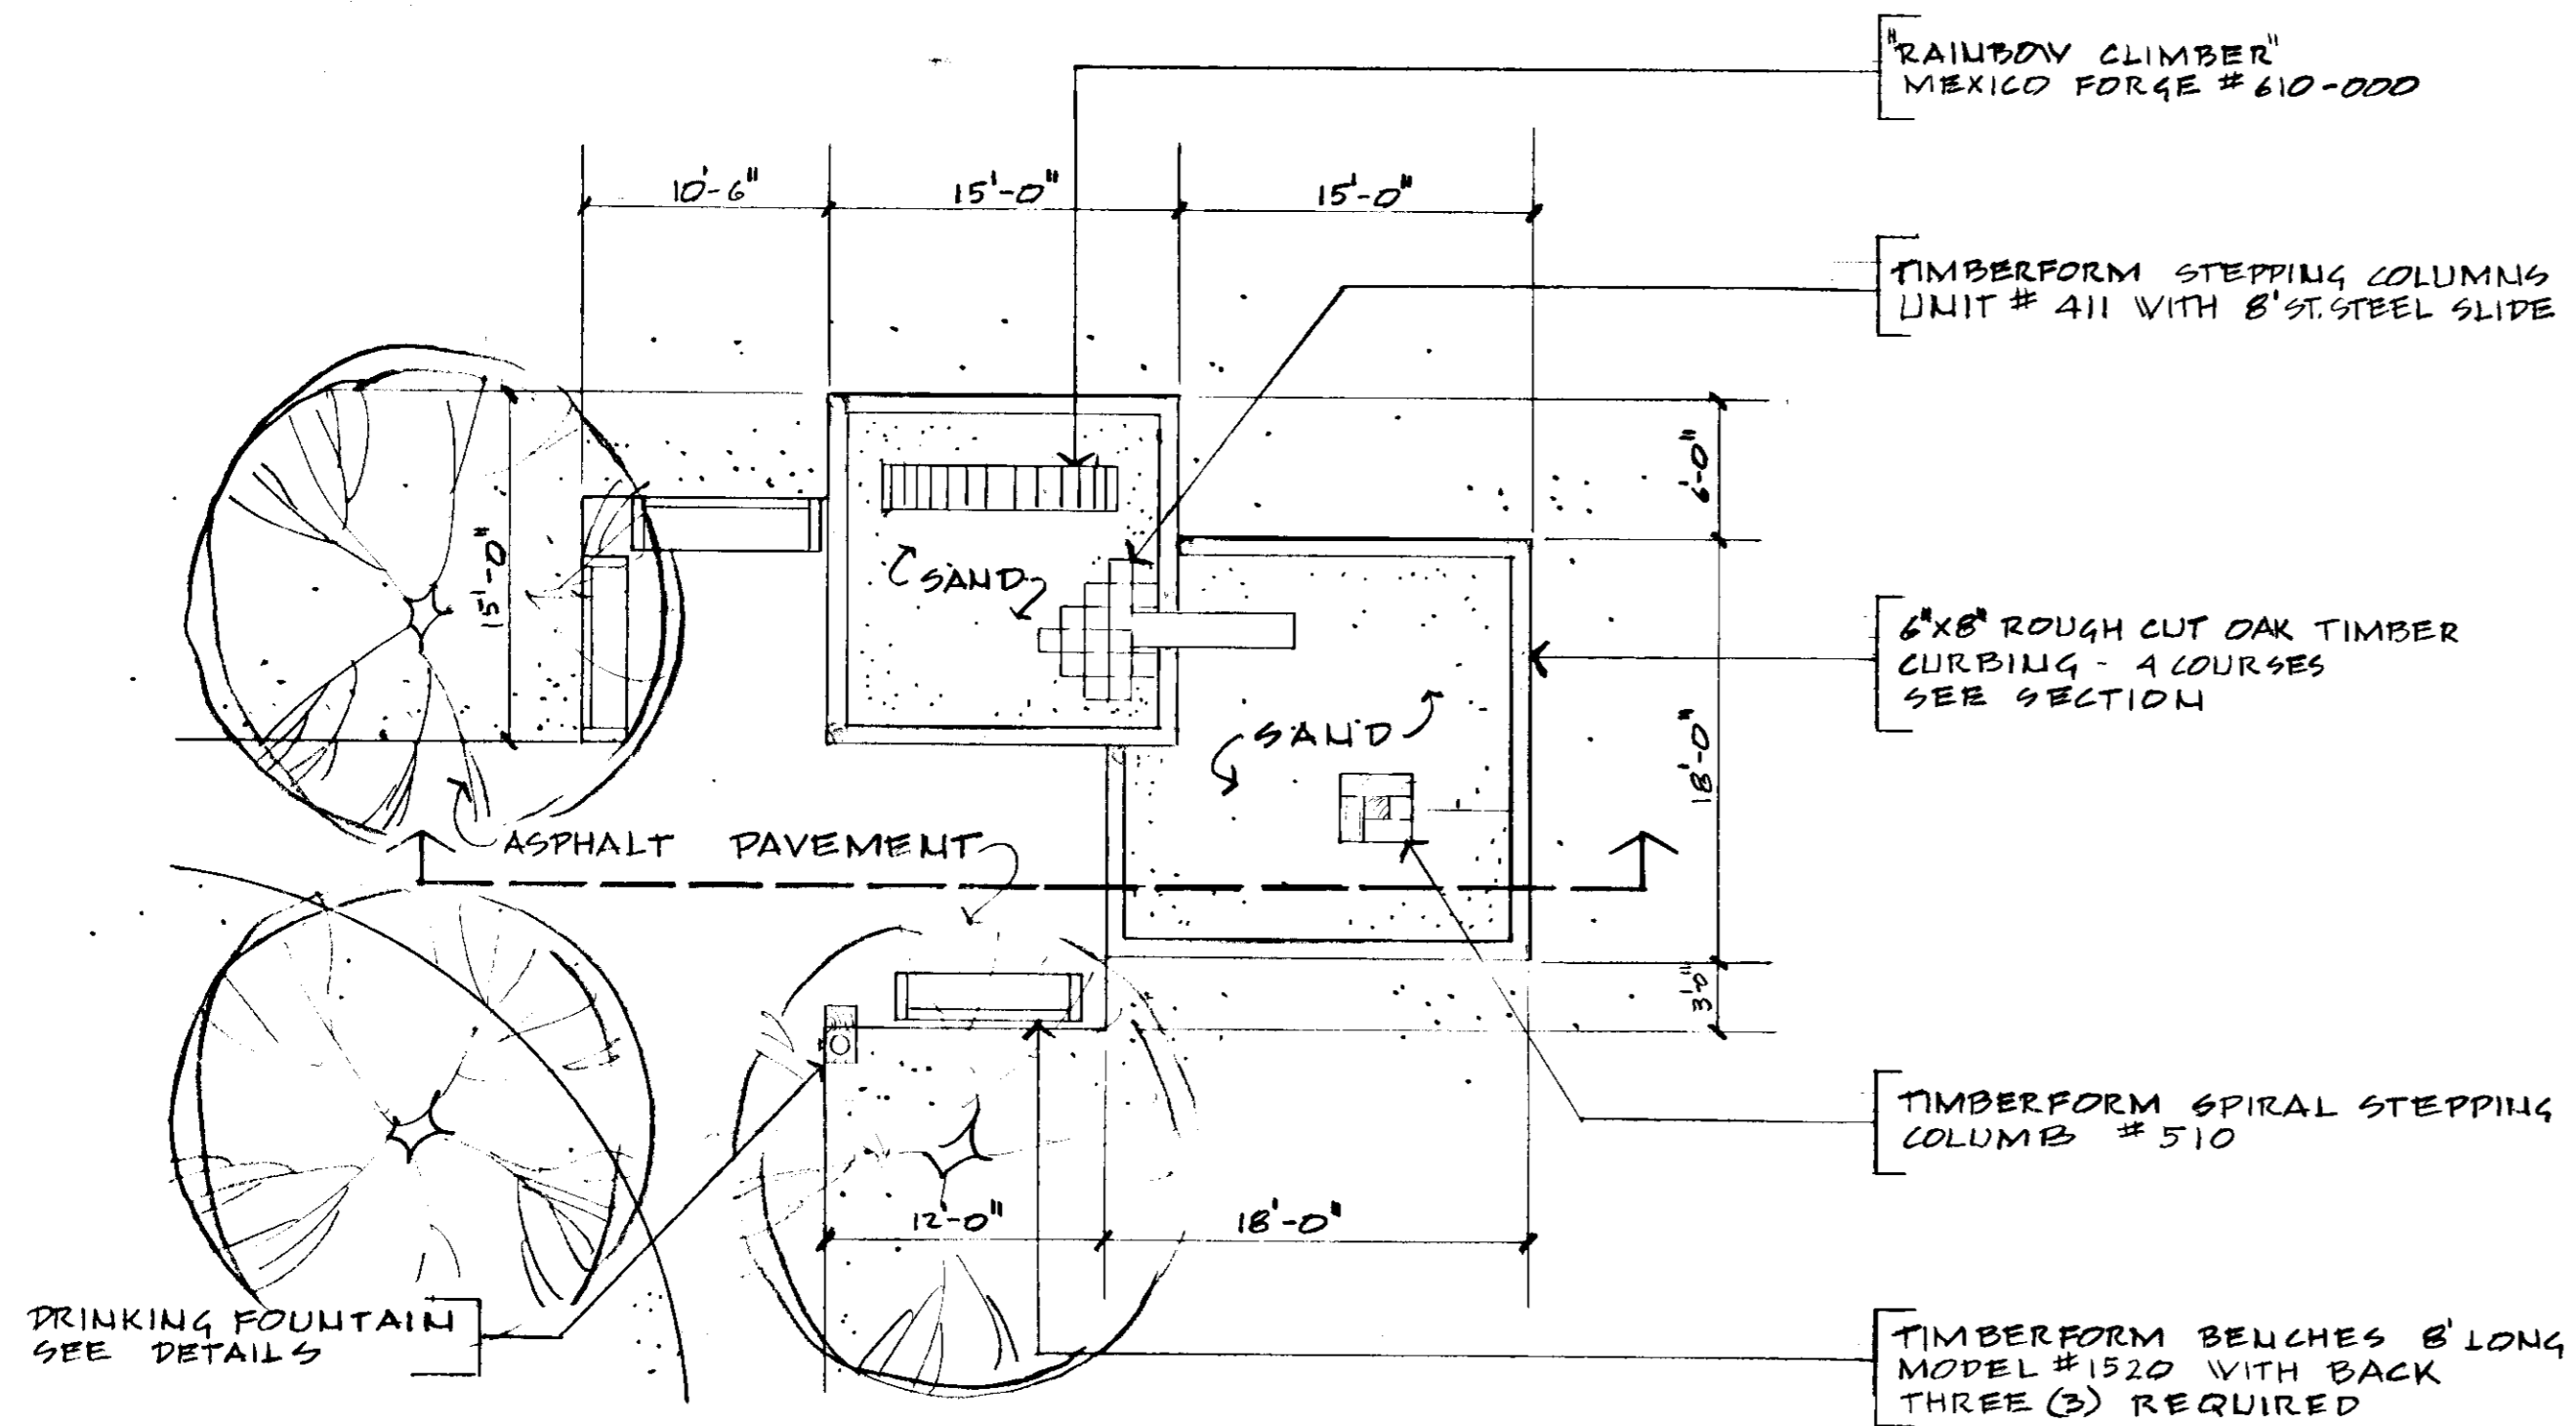 "RAINBOW CLIMBER"
MEXICO FORGE # 610-000
10'-6"
15'-0"
15'-0"
TIMBERFORM STEPPING COLUMNS
UNIT # 411 WITH 8' ST. STEEL SLIDE
6'-0"
15'-0"
SAND
6"X8" ROUGH CUT OAK TIMBER
CURBING - 4 COURSES
SEE SECTION
SAND
18'-0"
ASPHALT PAVEMENT
3'-0"
TIMBERFORM SPIRAL STEPPING
COLUMB # 510
12'-0"
18'-0"
DRINKING FOUNTAIN
SEE DETAILS
TIMBERFORM BENCHES 8' LONG
MODEL #1520 WITH BACK
THREE (3) REQUIRED